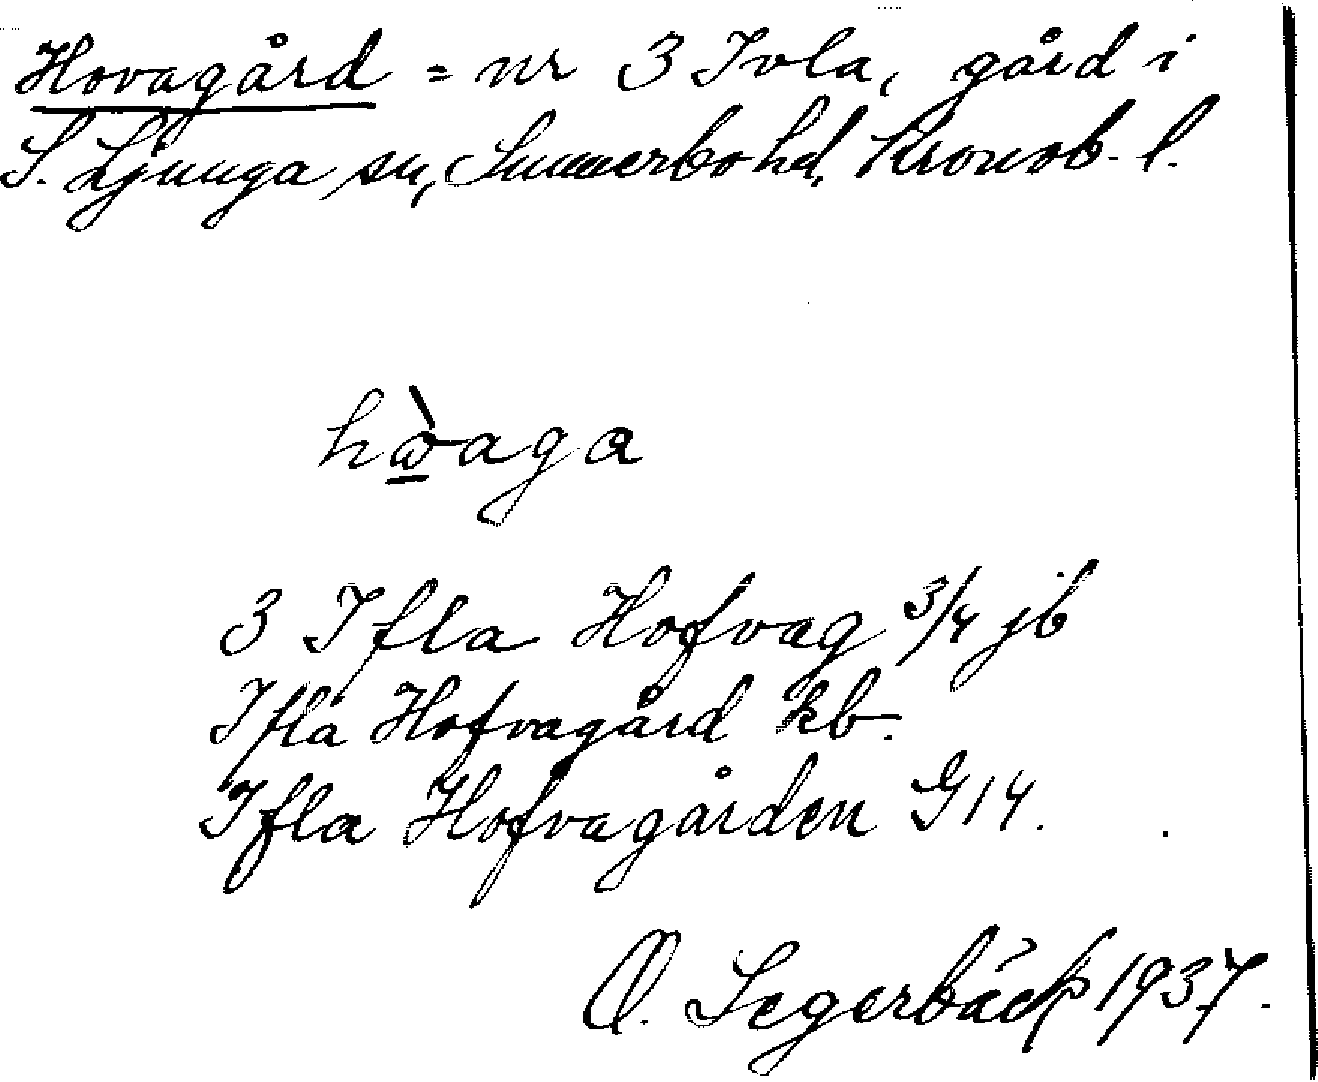 Hovagård = nr 3 Ivla, gård i
S. Ljunga sn, Sunnerbo hd, Kronob. l.
hὼ̱aga
3 Ifla Hofvag 3/4 jb
Ifla Hofvagård kb.
Ifla Hofvagården G14.
O. Segerbäck 1937.